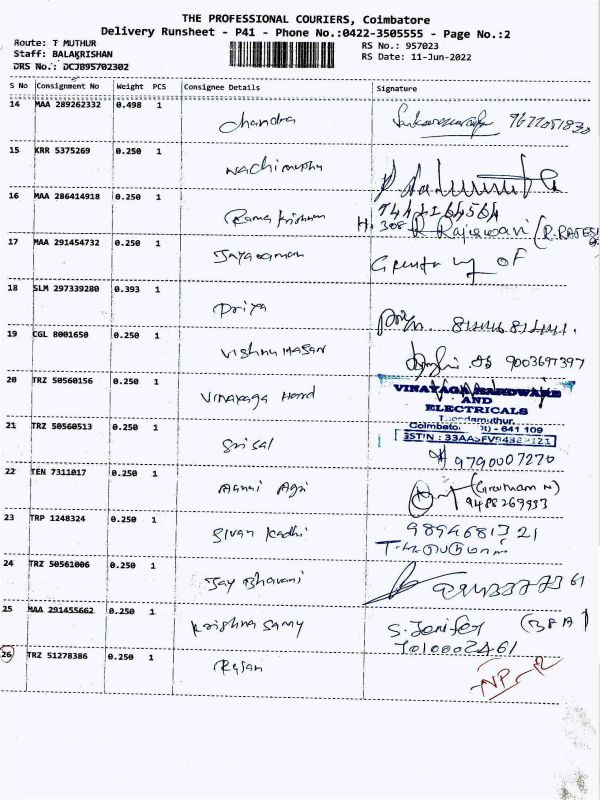 THE PROFESSIONAL COURIERS, Coimbatore
Delivery Runsheet - P41 - Phone No.:0422-3505555 - Page No.:2
Route: T MUTHUR
RS No.: 957023
Staff: BALAKRISHAN
RS Date: 11-Jun-2022
DRS No.: DCJB95702302
S No Consignment No Weight PCS Consignee Details Signature
14 MAA 289262332 0.498 1 Chandra
15 KRR 5375269 0.250 1 Nachimuthu
16 MAA 286414918 0.250 1 Rama Krishnan
H. 308 R Rajeswari
17 MAA 291454732 0.250 1 Jayaraman
of
18 SLM 297339280 0.393 1 Priya
19 CGL 8001650 0.250 1 Vishnu Hasan
9003697397
20 TRZ 50560156 0.250 1 Vinayaga Hard
VINAYAGA HARDWARE
AND
ELECTRICALS
641 109
21 TRZ 50560513 0.250 1 Sri Sai
9790007270
22 TEN 7311017 0.250 1 Agri
(Gowtham N)
9488269933
23 TRP 1248324 0.250 1 Sivan Kadhi
9894681321
24 TRZ 50561006 0.250 1 Jay Bhavani
25 MAA 291455662 0.250 1 Krishna Samy S. Jenifer
7010002461
26 TRZ 51278386 0.250 1 Rajan
NP